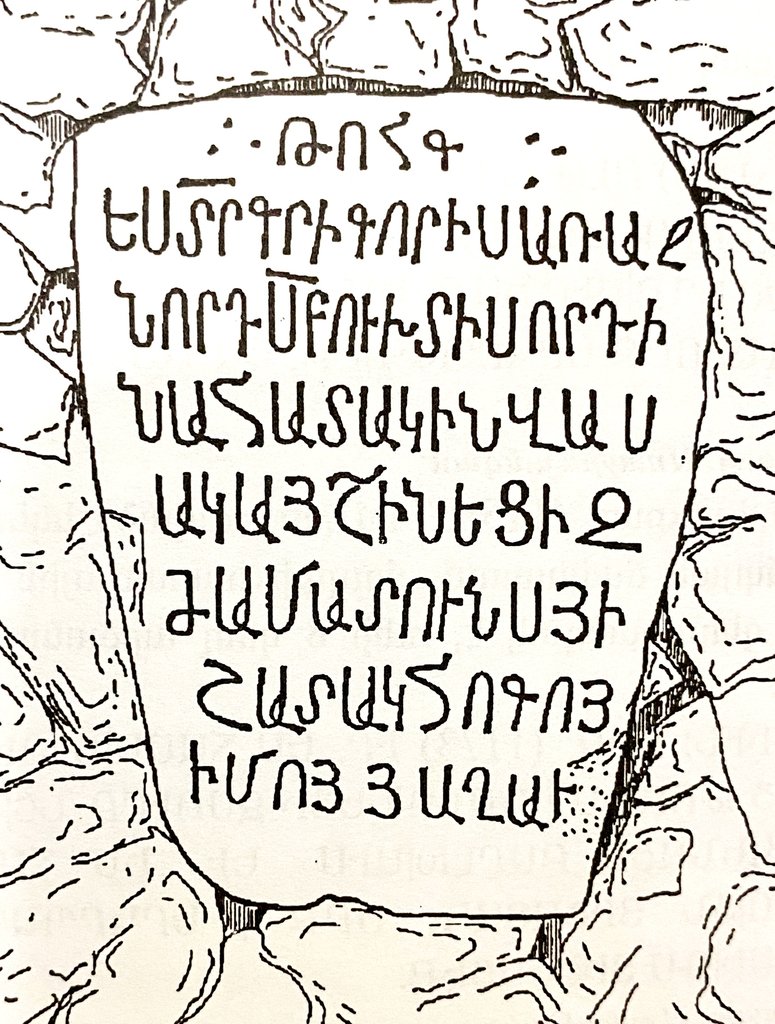 ԹՈՀԳ
ԵՍ ՏՐ ԳՐԻԳՈՐԻՍ ԱՌԱՋ
ՆՈՐԴ ՍԲ ՈՒԽՏԻՍ ՈՐԴԻ
ՆԱՀԱՏԱԿԻՆ ՎԱՍ
ԱԿԱՅ ՇԻՆԵՑԻ Զ
ԺԱՄԱՏՈՒՆՍ ՅԻ
ՇԱՏԱԿ ՀՈԳՈՅ
ԻՄՈՅ ՅԱՂԱՒ